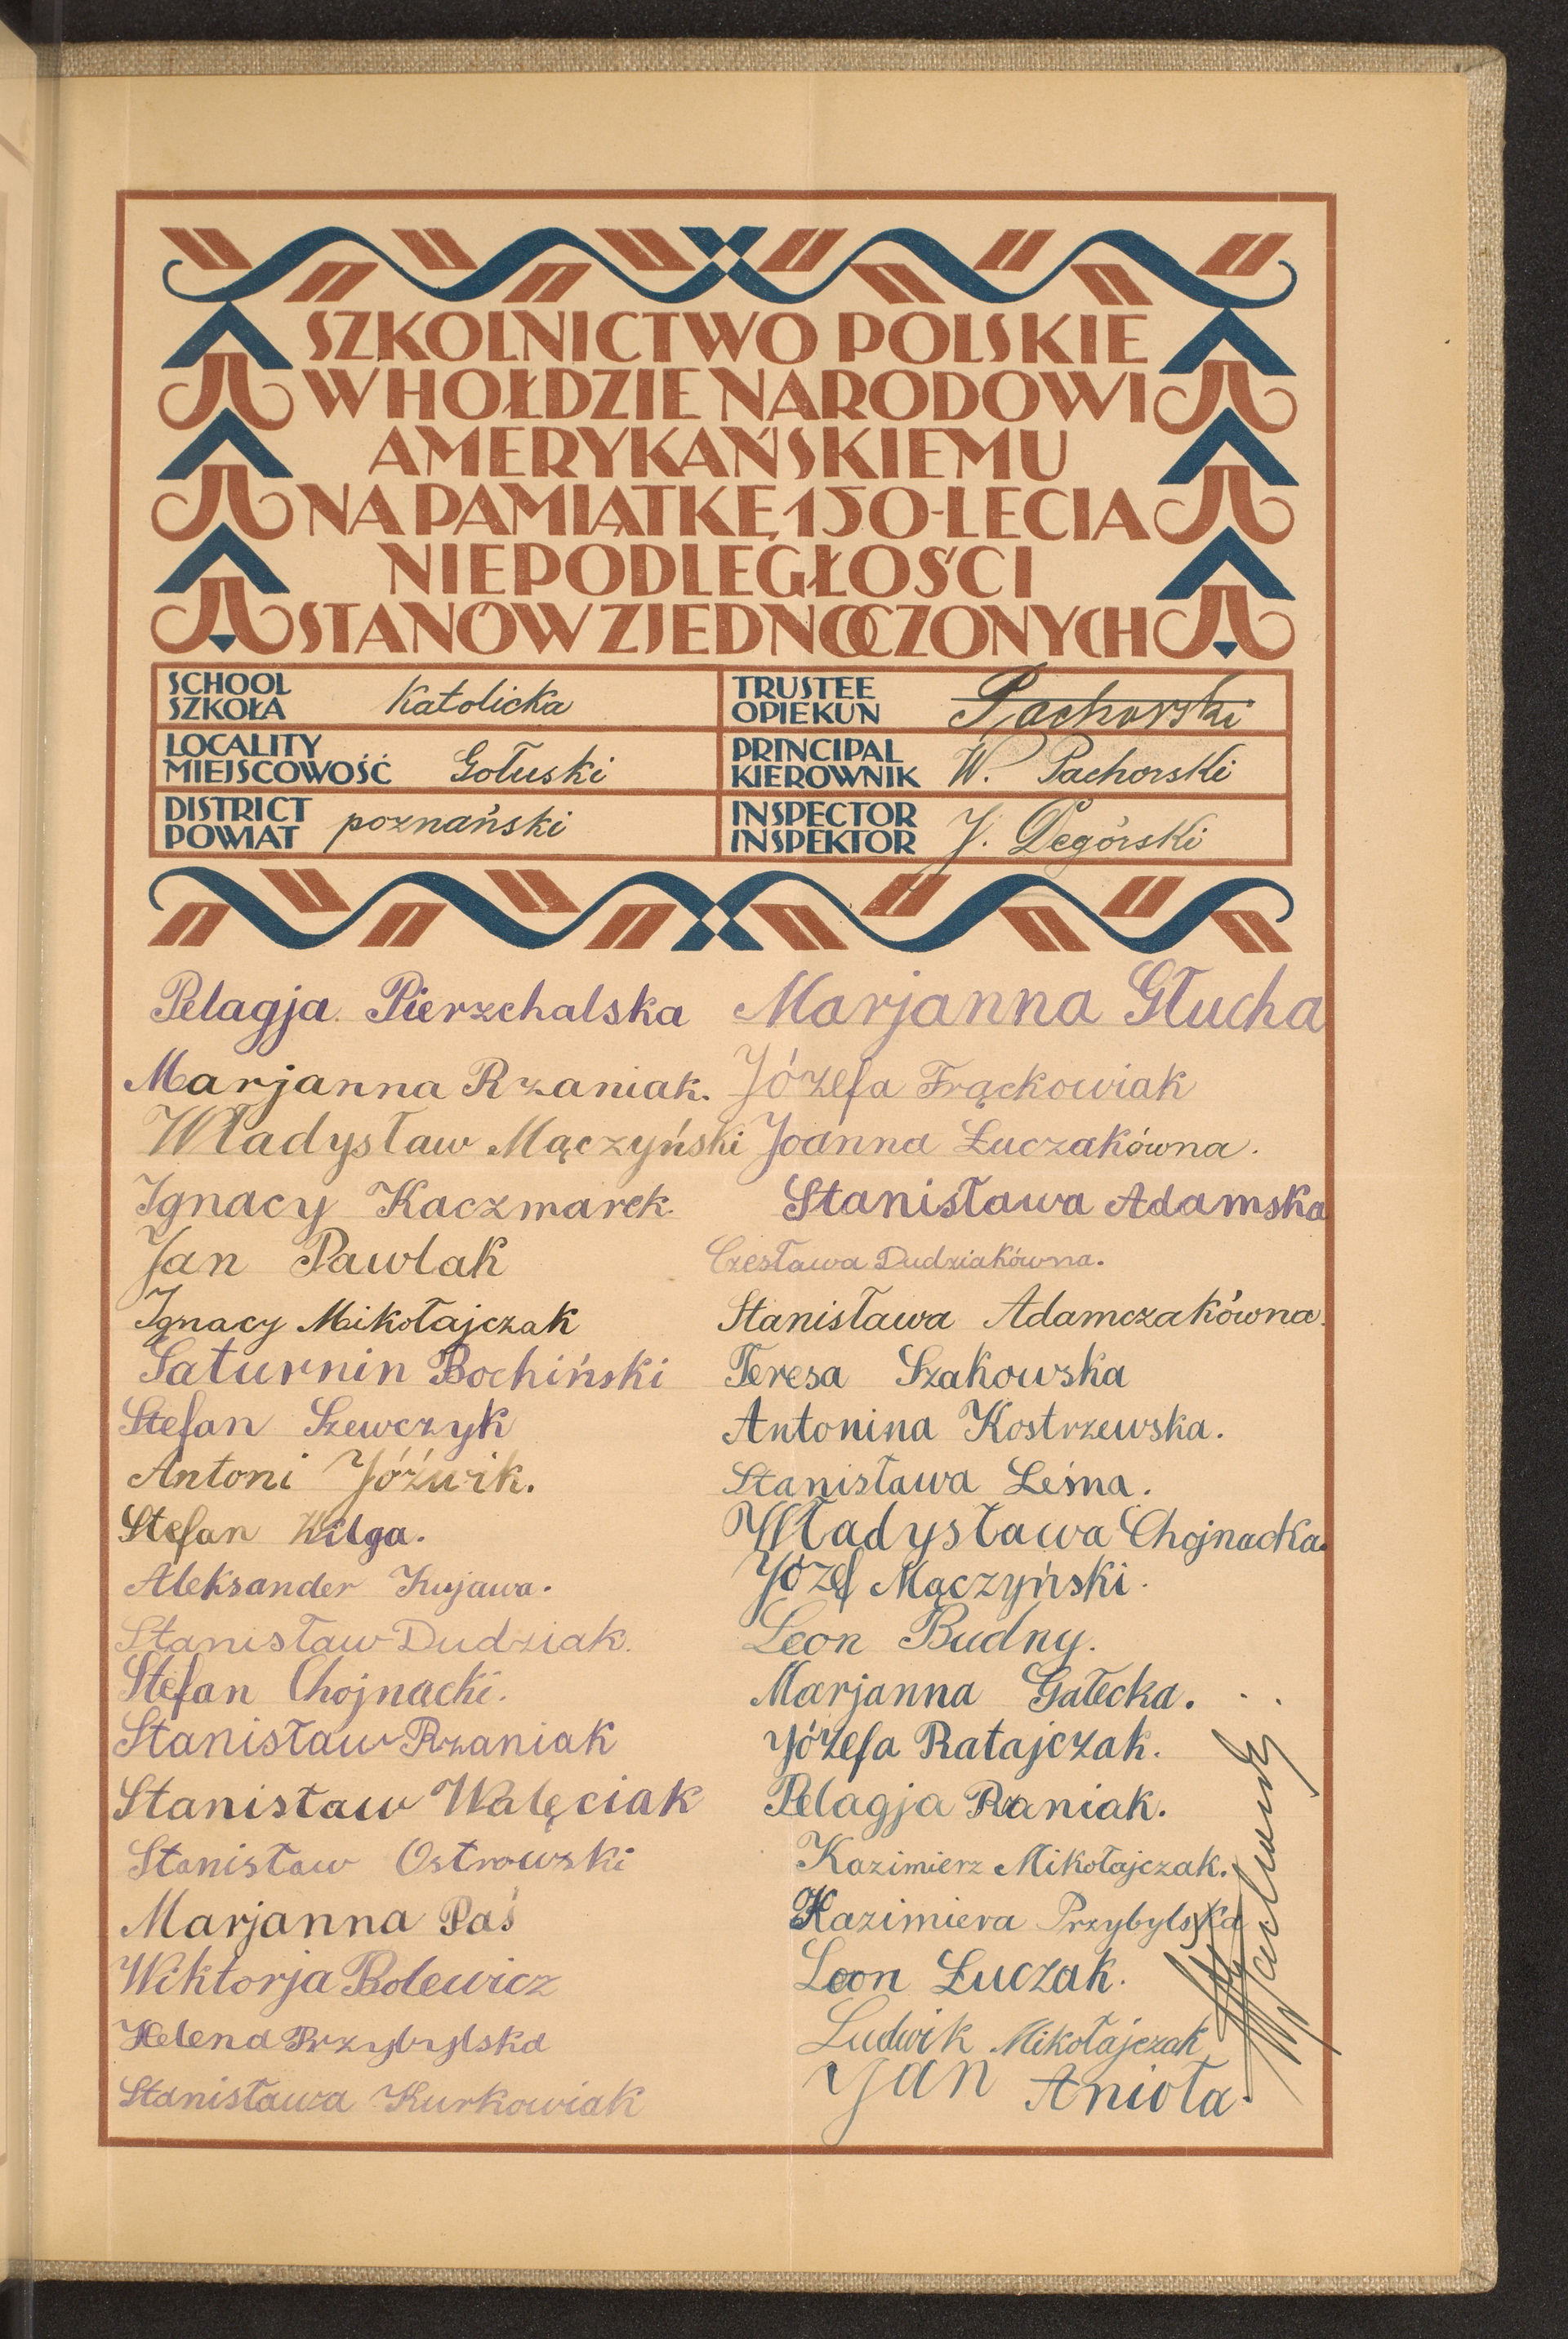 SZKOLNICTWO POLSKIE
W HOŁDZIE NARODOWI
AMERYKAŃSKIEMU
NA PAMIĄTKĘ 150-LECIA
NIEPODLEGŁOŚCI
STANÓW ZJEDNOCZONYCH
SCHOOL
SZKOŁA Katolicka
LOCALITY
MIEJSCOWOŚĆ Gołuski
DISTRICT
POWIAT poznański
TRUSTEE
OPIEKUN Pachorski
PRINCIPAL
KIEROWNIK W. Pachorski
INSPECTOR
INSPEKTOR J. Degórski
Pelagja Pierzchalska
Marjanna Rzaniak.
Władysław Mączyński
Ignacy Kaczmarek.
Jan Pawlak
Ignacy Mikołajczak
Saturnin Bochiński
Stefan Szewczyk
Antoni Jóźwik.
Stefan Wilga.
Aleksander Kujawa.
Stanisław Dudziak.
Stefan Chojnacki.
Stanisław Rzaniak
Stanisław Walęciak
Stanisław Ostrowski
Marjanna Paś
Wiktorja Bolewicz
Helena Przybylska
Stanisława Kurkowiak
Marjanna Głucha
Józefa Frąckowiak
Joanna Łuczakówna.
Stanisława Adamska
Czesława Dudziakówna.
Stanisława Adamczakówna.
Teresa Szakowska
Antonina Kostrzewska.
Stanisława Leśna.
Władysława Chojnacka.
Józef Mączyński.
Leon Budny.
Marjanna Gałecka.
Józefa Ratajczak.
Pelagja Rzaniak.
Kazimierz Mikołajczak.
Kazimiera Przybylska
Leon Łuczak.
Ludwik Mikołajczak
Jan Anioła.